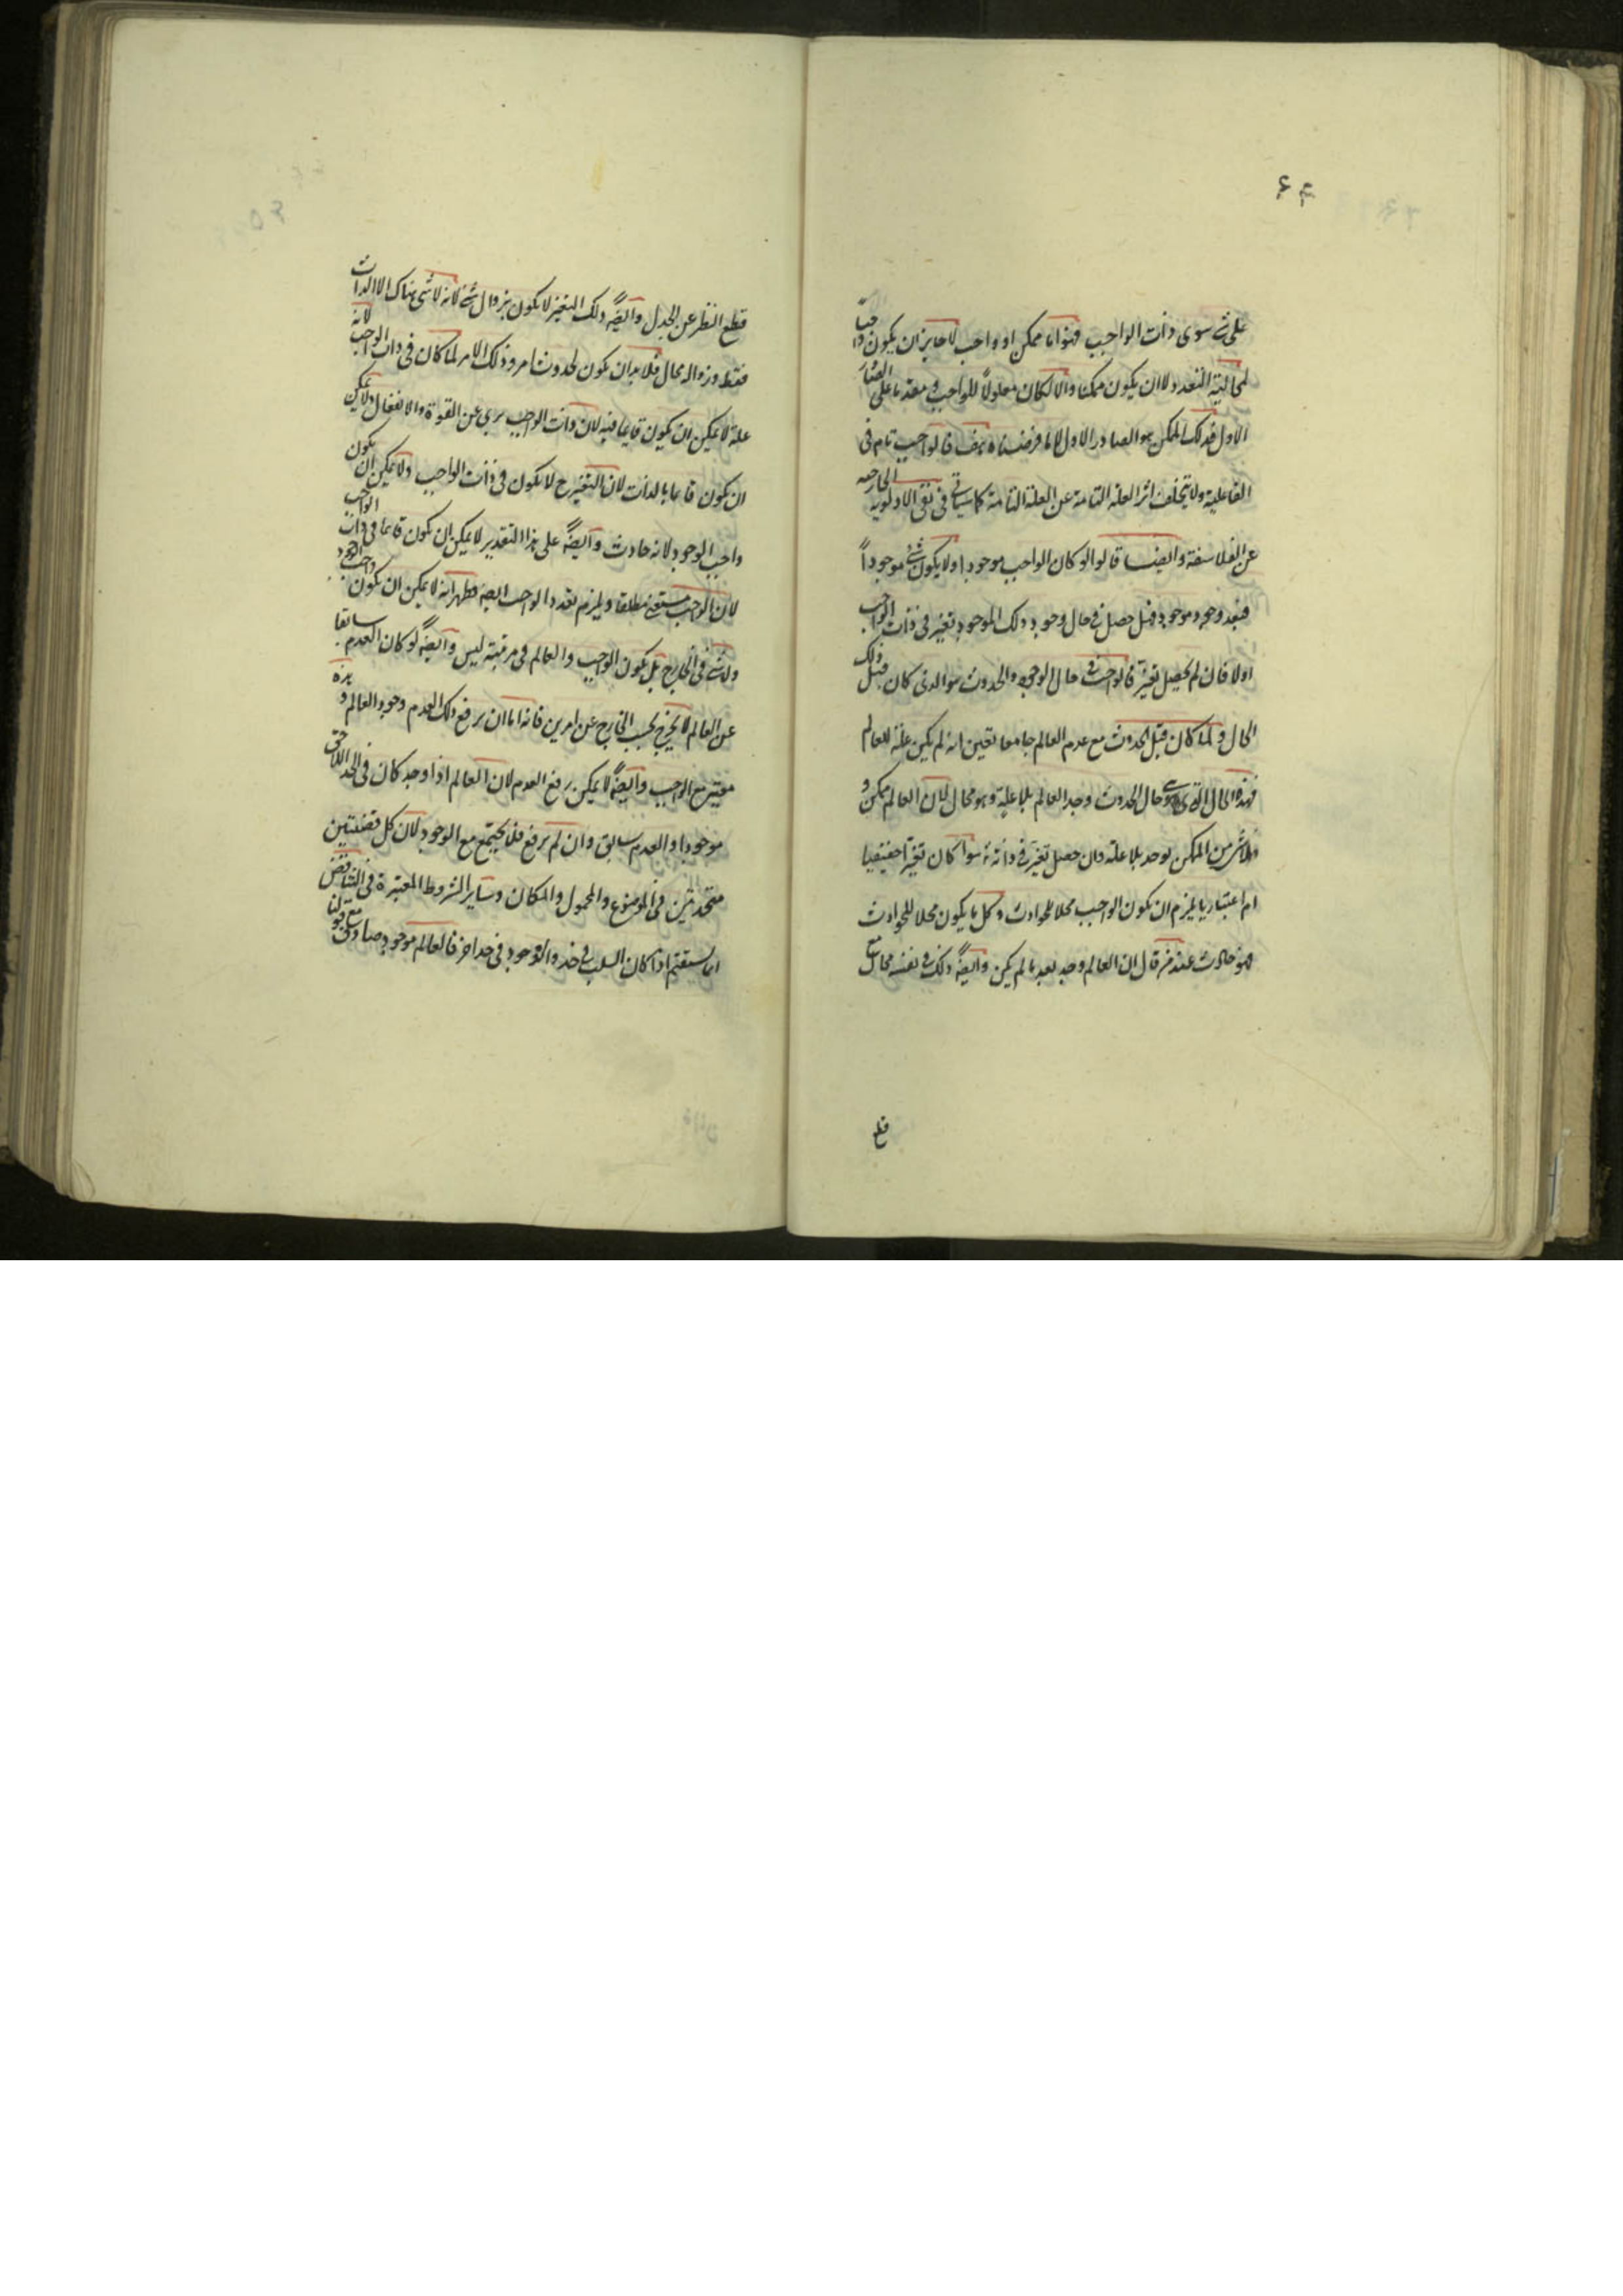 ۶۴
على شئ سوى ذات الواجب فهو اما ممكن او واجب لا جايز ان يكون واجباً
لمحالية التعدد ولا ان يكون ممكنا والا لكان معلولاً للواجب و متقدما على الصادر
الاول فذلك الممكن هو الصادر الاول لا ما فرضناه هف فالواجب تام فى
الفاعلية ولا يتخلف اثر العلة التامة عن العلة التامة كما سياتى فى نفى الاولوية الخارجية
عن الفلاسفة وايضا قالوا لو كان الواجب موجودا ولا يكون شئ موجوداً
فبعد وجود موجود فهل حصل فى حال وجود ذلك الموجود تغير فى ذات الواجب
اولا فان لم يحصل تغير فالواجب فى حال الوجود والحدوث هو الذى كان قبل ذلك
الحال و لما كان قبل الحدوث مع عدم العالم جامعا تعين انه لم يكن علة للعالم
فهذه الحال التى هى حال الحدوث وجد العالم بلا علية وهو محال لان العالم ممكن و
لا شئ من الممكن يوجد بلا علة وان حصل تغير فى ذاته سواء كان تغيرا حقيقيا
ام اعتباريا يلزم ان يكون الواجب محلا للحوادث وكل ما يكون محلا للحوادث
فهو حادث عند من قال ان العالم وجد بعد ما لم يكن وايضاً ذلك فى نفسه محال مع
قطع
قطع النظر عن الجدل وايضاً ذلك التغير لا يكون بزوال شئ لانه لا شئ هناك الا الذات
فقط وزواله محال فلا بد ان يكون لحدوث امر وذلك الامر لما كان فى ذات الواجب لانه
علة لا يمكن ان يكون قايما فيه لان ذات الواجب برى عن القوة والانفعال ولا يمكن
ان يكون قايما بالذات لان التغير ح لا يكون فى ذات الواجب ولا يمكن ان يكون
واجب الوجود لانه حادث وايضاً على هذا التقدير لا يمكن ان يكون قايما فى ذات الواجب
لان الواجب مستغن مطلقا ويلزم تعدد الواجب ايضا فظهر انه لا يمكن ان يكون واجب الوجود
ولا شئ فى الخارج بل يكون الواجب والعالم فى مرتبة ليس وايضاً لو كان العدم سابقا
عن العالم لا يخرج بحسب الخارج عن امرين فانه اما ان يرفع ذلك العدم وجود العالم و هذه
معيته مع الواجب وايضاً لا يمكن رفع العدم لان العالم اذا وجد كان فى الحد اللاحق
موجودا والعدم سابق وان لم يرفع فلا يجتمع مع الوجود لان كل قضيتين
متحدتين فى الموضوع والمحمول والمكان وساير الشروط المعتبرة فى التناقض
انما يستقيم اذا كان السلب فى حد والوجود فى حد اخر فالعالم موجود صادق مع قولنا